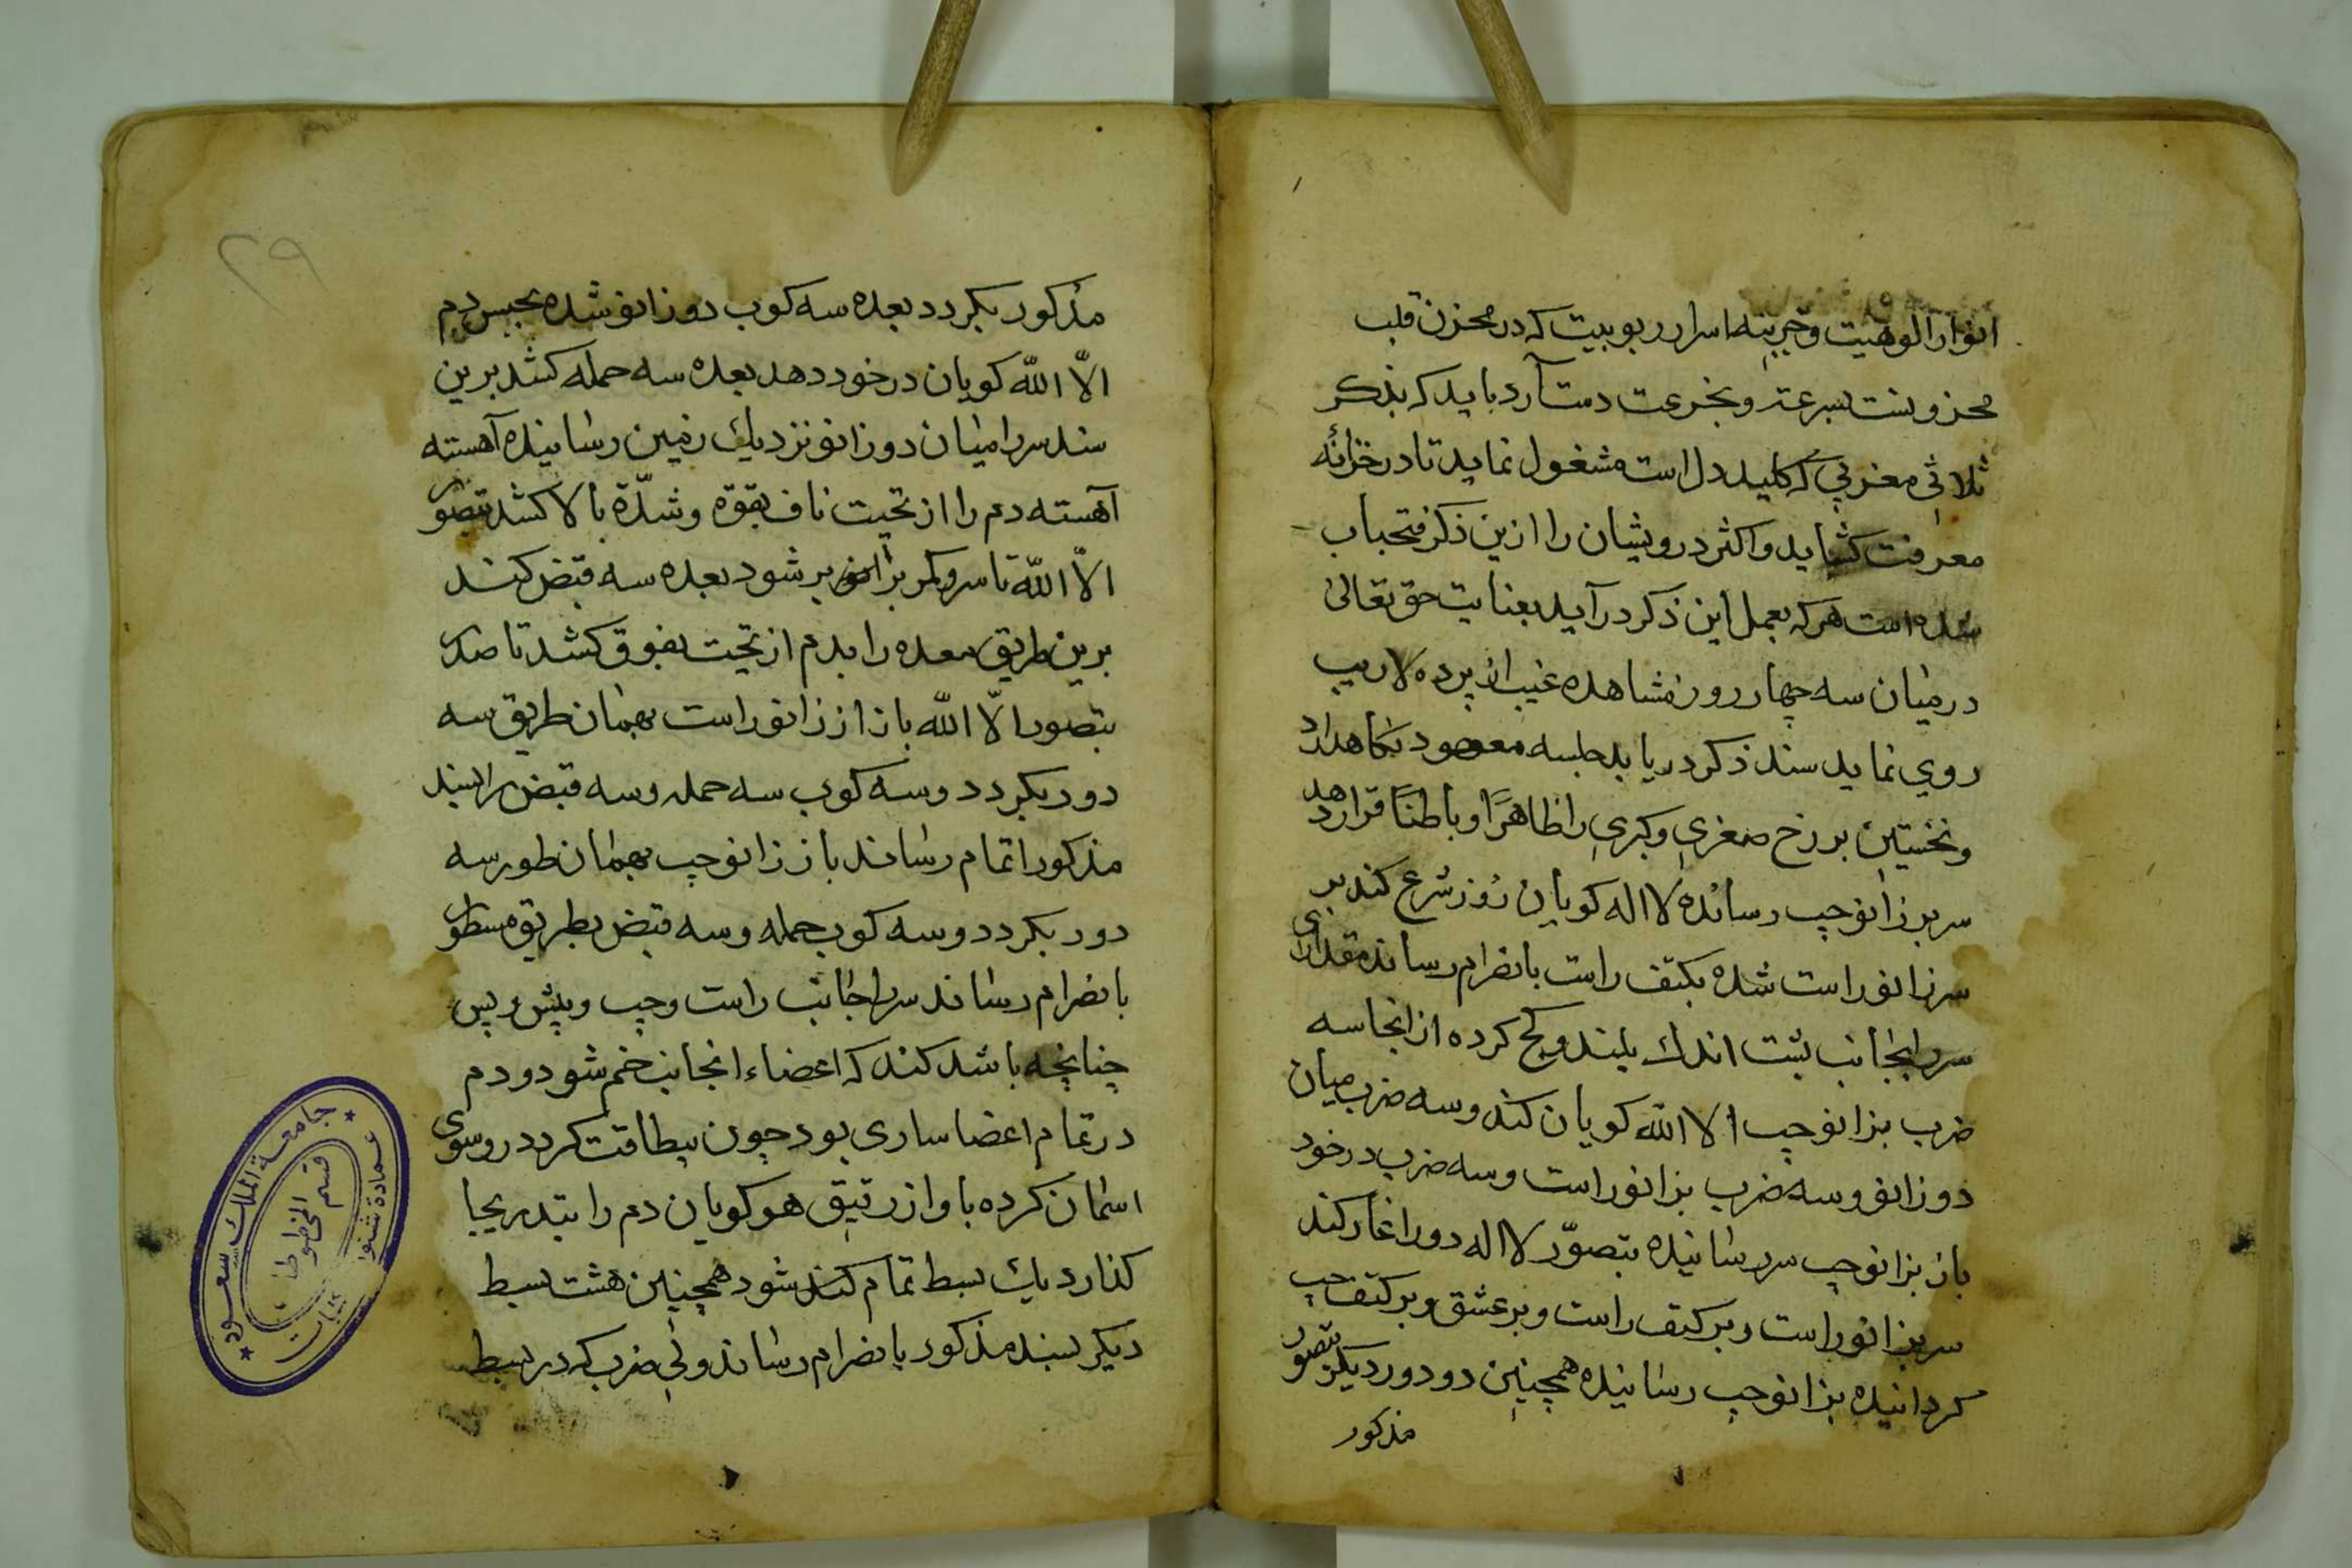 انوار الوهیت و خزینه اسرار ربوبیت که در مخزن قلب
مخزونست بسرعت و بخرعت دست آرد باید که بذکر
ثلاثی مغربی که کلید دل است مشغول نماید تا در خزانهٔ
معرفت کشاید و اکثر درویشان را ازین ذکر فتحباب
شده است هر که بعمل این ذکر در آید بعنایت حق تعالی
در میان سه چهار روز مشاهده غیب از پرده لاریب
روی نماید سند ذکر دریابد جلسه معهود نگاهدارد
و نخستین برزخ صغری و کبری را ظاهرًا و باطنًا قرار دهد
سر بر زانو چپ رسانده لا اله کویان شرع کند بر
سر زانو راست شده بکتف راست بانصرام رساند مقداری
سر را بجانب پشت اندك بلند و کج کرده از انجا سه
ضرب بزانو چپ الا الله کویان کند و سه ضرب میان
دو زانو و سه ضرب بزانو راست و سه ضرب در خود
باز بزانو چپ سر رسانیده بتصوّر لا اله دور اغاز کند
سر بزانو راست و بر کتف راست و بر عشق و بر کتف چپ
کردانیده بزانو چپ رسانیده همچنین دو دور دیکر بتصور
مذکور
۲۹
مذکور بکردد بعده سه کوب دو زانو شده بحبس دم
الّا الله کویان در خود دهد بعده سه حمله کشد برین
سند سر را میان دو زانو نزدیك زمین رسانیده آهسته
آهسته دم را از تحت ناف بقوة و شدّة بالا کشد بتصور
الّا الله تا سر و کمر برابر شود بعده سه قبض کند
برین طریق معده را بدم از تحت بفوق کشد تا صدر
بتصور الّا الله باز از زانو راست بهمان طریق سه
دور بکردد و سه کوب سه حمله و سه قبض را بسند
مذکور اتمام رساند باز زانو چپ بهمان طور سه
دور بکردد و سه کوب حمله و سه قبض بطریق مسطور
بانصرام رساند سر را جانب راست و چپ و پیش و پس
چنانچه باشد کند که اعضاء انجانب خم شود و دم
در تمام اعضا ساری بود چون بیطاقت کردد رو سوی
اسمان کرده باواز رقیق هو کویان دم را بتدریجا
کذارد یك بسط تمام کند شود همچنین هشت بسط
دیکر بسند مذکور بانصرام رساند ولی ضرب که در بسط
جامعة الملك سعود
عمادة شئون
المكتبات
قسم المخطوطات